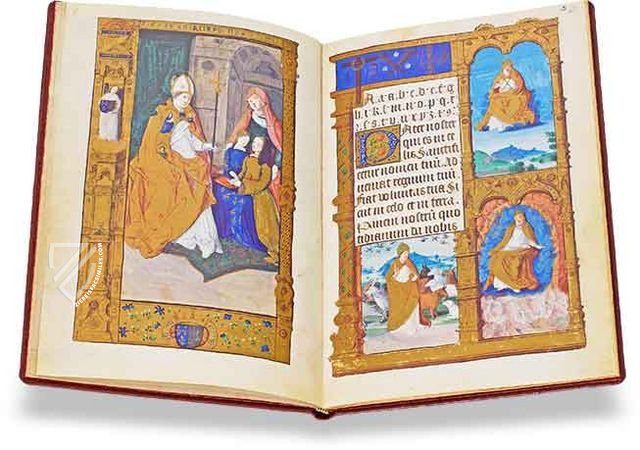 A a.b.c.d.e.f.g
Pater noster
qui es in ce
lis Sanctifi
cetur nomen tuū Ad
ueniat regnum tuū
Fiat voluntas tua Si
cut in celo et in terra.
Panem nostrū quo
tidianum da nobis